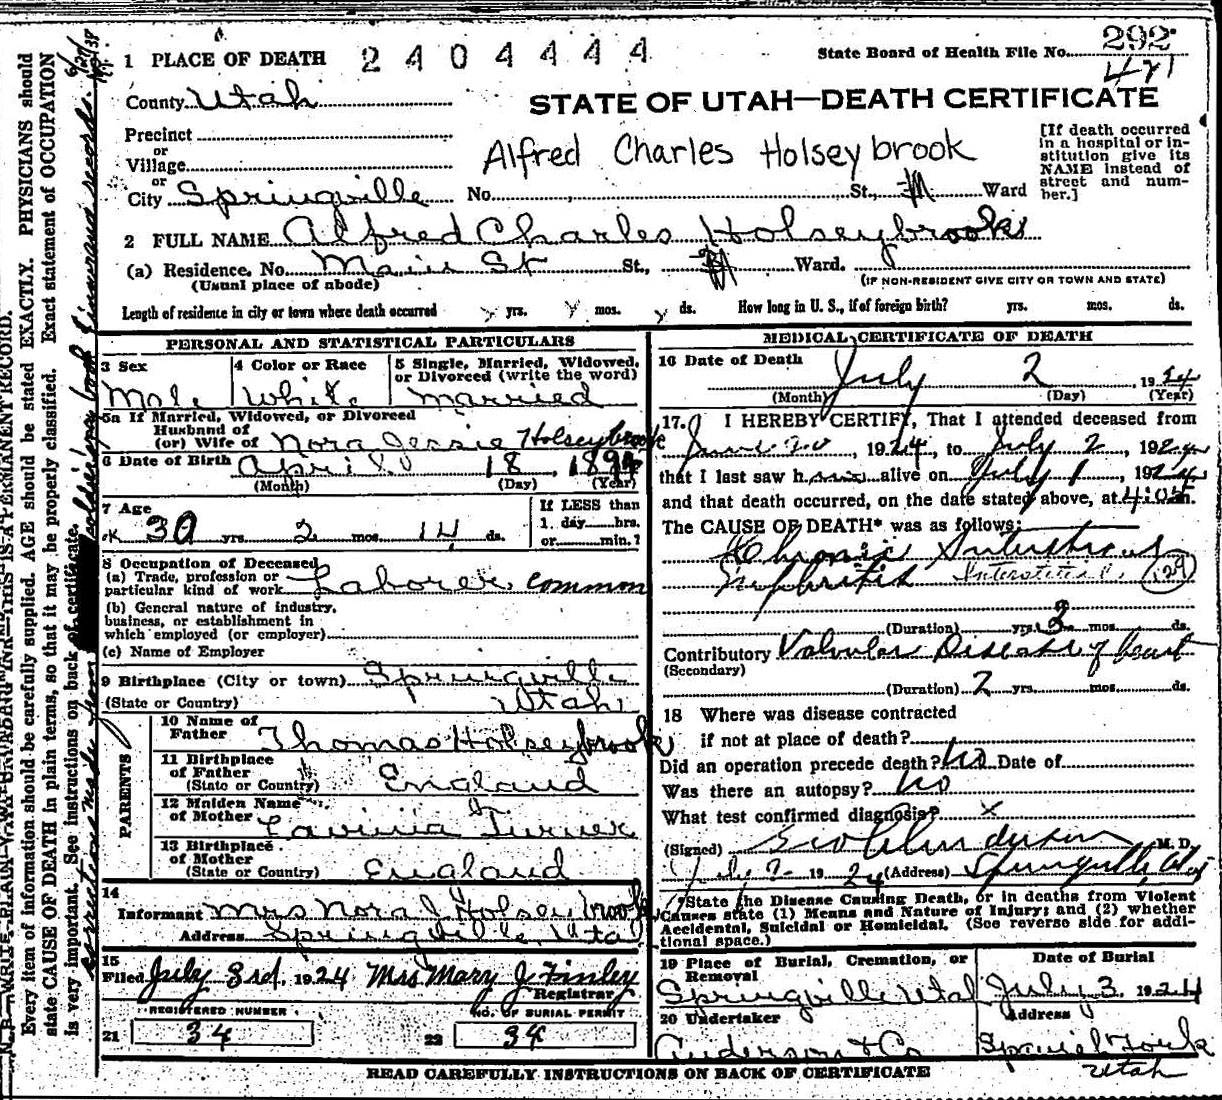 1 PLACE OF DEATH 2404444 State Board of Health File No. 292
421
County Utah STATE OF UTAH—DEATH CERTIFICATE
Precinct
or
Village
or
City Springville No. St., Ward
Alfred Charles Holseybrook
[If death occurred in a hospital or institution give its NAME instead of street and number.]
2 FULL NAME Alfred Charles Holseybrook
(a) Residence. No. Main St St., Ward.
(Usual place of abode) (IF NON-RESIDENT GIVE CITY OR TOWN AND STATE)
Length of residence in city or town where death occurred yrs. mos. ds. How long in U. S., if of foreign birth? yrs. mos. ds.
PERSONAL AND STATISTICAL PARTICULARS
3 Sex
Male
4 Color or Race
White
5 Single, Married, Widowed,
or Divorced (write the word)
Married
5a If Married, Widowed, or Divorced
Husband of
(or) Wife of Nora Jessie Holseybrook
6 Date of Birth April 18, 1894
(Month) (Day) (Year)
7 Age
OK 30 yrs. 2 mos. 14 ds.
If LESS than
1. day hrs.
or min.?
8 Occupation of Deceased
(a) Trade, profession or
particular kind of work Laborer, common
(b) General nature of industry,
business, or establishment in
which employed (or employer)
(c) Name of Employer
9 Birthplace (City or town) Springville
(State or Country) Utah
PARENTS
10 Name of
Father Thomas Holseybrook
11 Birthplace
of Father
(State or Country) England
12 Maiden Name
of Mother Lavinia Turner
13 Birthplace
of Mother
(State or Country) England
14
Informant Mrs Nora J Holseybrook
Address Springville, Utah
15
Filed July 3rd, 1924 Mrs Mary J Finley
Registrar
REGISTERED NUMBER
21 34
NO. OF BURIAL PERMIT
22 34
MEDICAL CERTIFICATE OF DEATH
16 Date of Death
July 2, 1924
(Month) (Day) (Year)
17. I HEREBY CERTIFY, That I attended deceased from
June 20, 1924, to July 2, 1924
that I last saw him alive on July 1, 1924
and that death occurred, on the date stated above, at 4:05 m.
The CAUSE OF DEATH* was as follows:
Chronic Interstitial
Nephritis Interstitial (129)
(Duration) yrs. 3 mos. ds.
Contributory Valvular Disease of heart
(Secondary)
(Duration) 2 yrs. mos. ds.
18 Where was disease contracted
if not at place of death?
Did an operation precede death? No Date of
Was there an autopsy? No
What test confirmed diagnosis? x
(Signed) Anderson M. D.
July 2 1924 (Address) Springville, Utah
*State the Disease Causing Death, or in deaths from Violent
Causes state (1) Means and Nature of Injury; and (2) whether
Accidental, Suicidal or Homicidal. (See reverse side for addi-
tional space.)
19 Place of Burial, Cremation, or
Removal
Springville Utah
Date of Burial
July 3. 1924
20 Undertaker
Anderson & Co
Address
Spanish Fork
Utah
READ CAREFULLY INSTRUCTIONS ON BACK OF CERTIFICATE
N. B.—WRITE PLAINLY WITH UNFADING INK—THIS IS A PERMANENT RECORD.
Every item of information should be carefully supplied. AGE should be stated EXACTLY. PHYSICIANS should
state CAUSE OF DEATH in plain terms, so that it may be properly classified. Exact statement of OCCUPATION
is very important. See instructions on back of certificate.